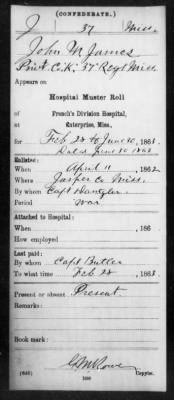 (CONFEDERATE.)
J 37 Miss.
John M James
Pvt. Co. K, 37 Regt Miss.
Appears on
Hospital Muster Roll
of
French's Division Hospital,
at
Enterprise, Miss.,
for Feb 28 to June 10, 1863
Dated June 10 1863
Enlisted:
When April 11, 1862
Where Jasper Co Miss.
By whom Capt Dantzler
Period War
Attached to Hospital:
When , 186
How employed
Last paid:
By whom Capt Butler
To what time Feb 28, 1863
Present or absent Present
Remarks:
Book mark:
(646) Copyist.